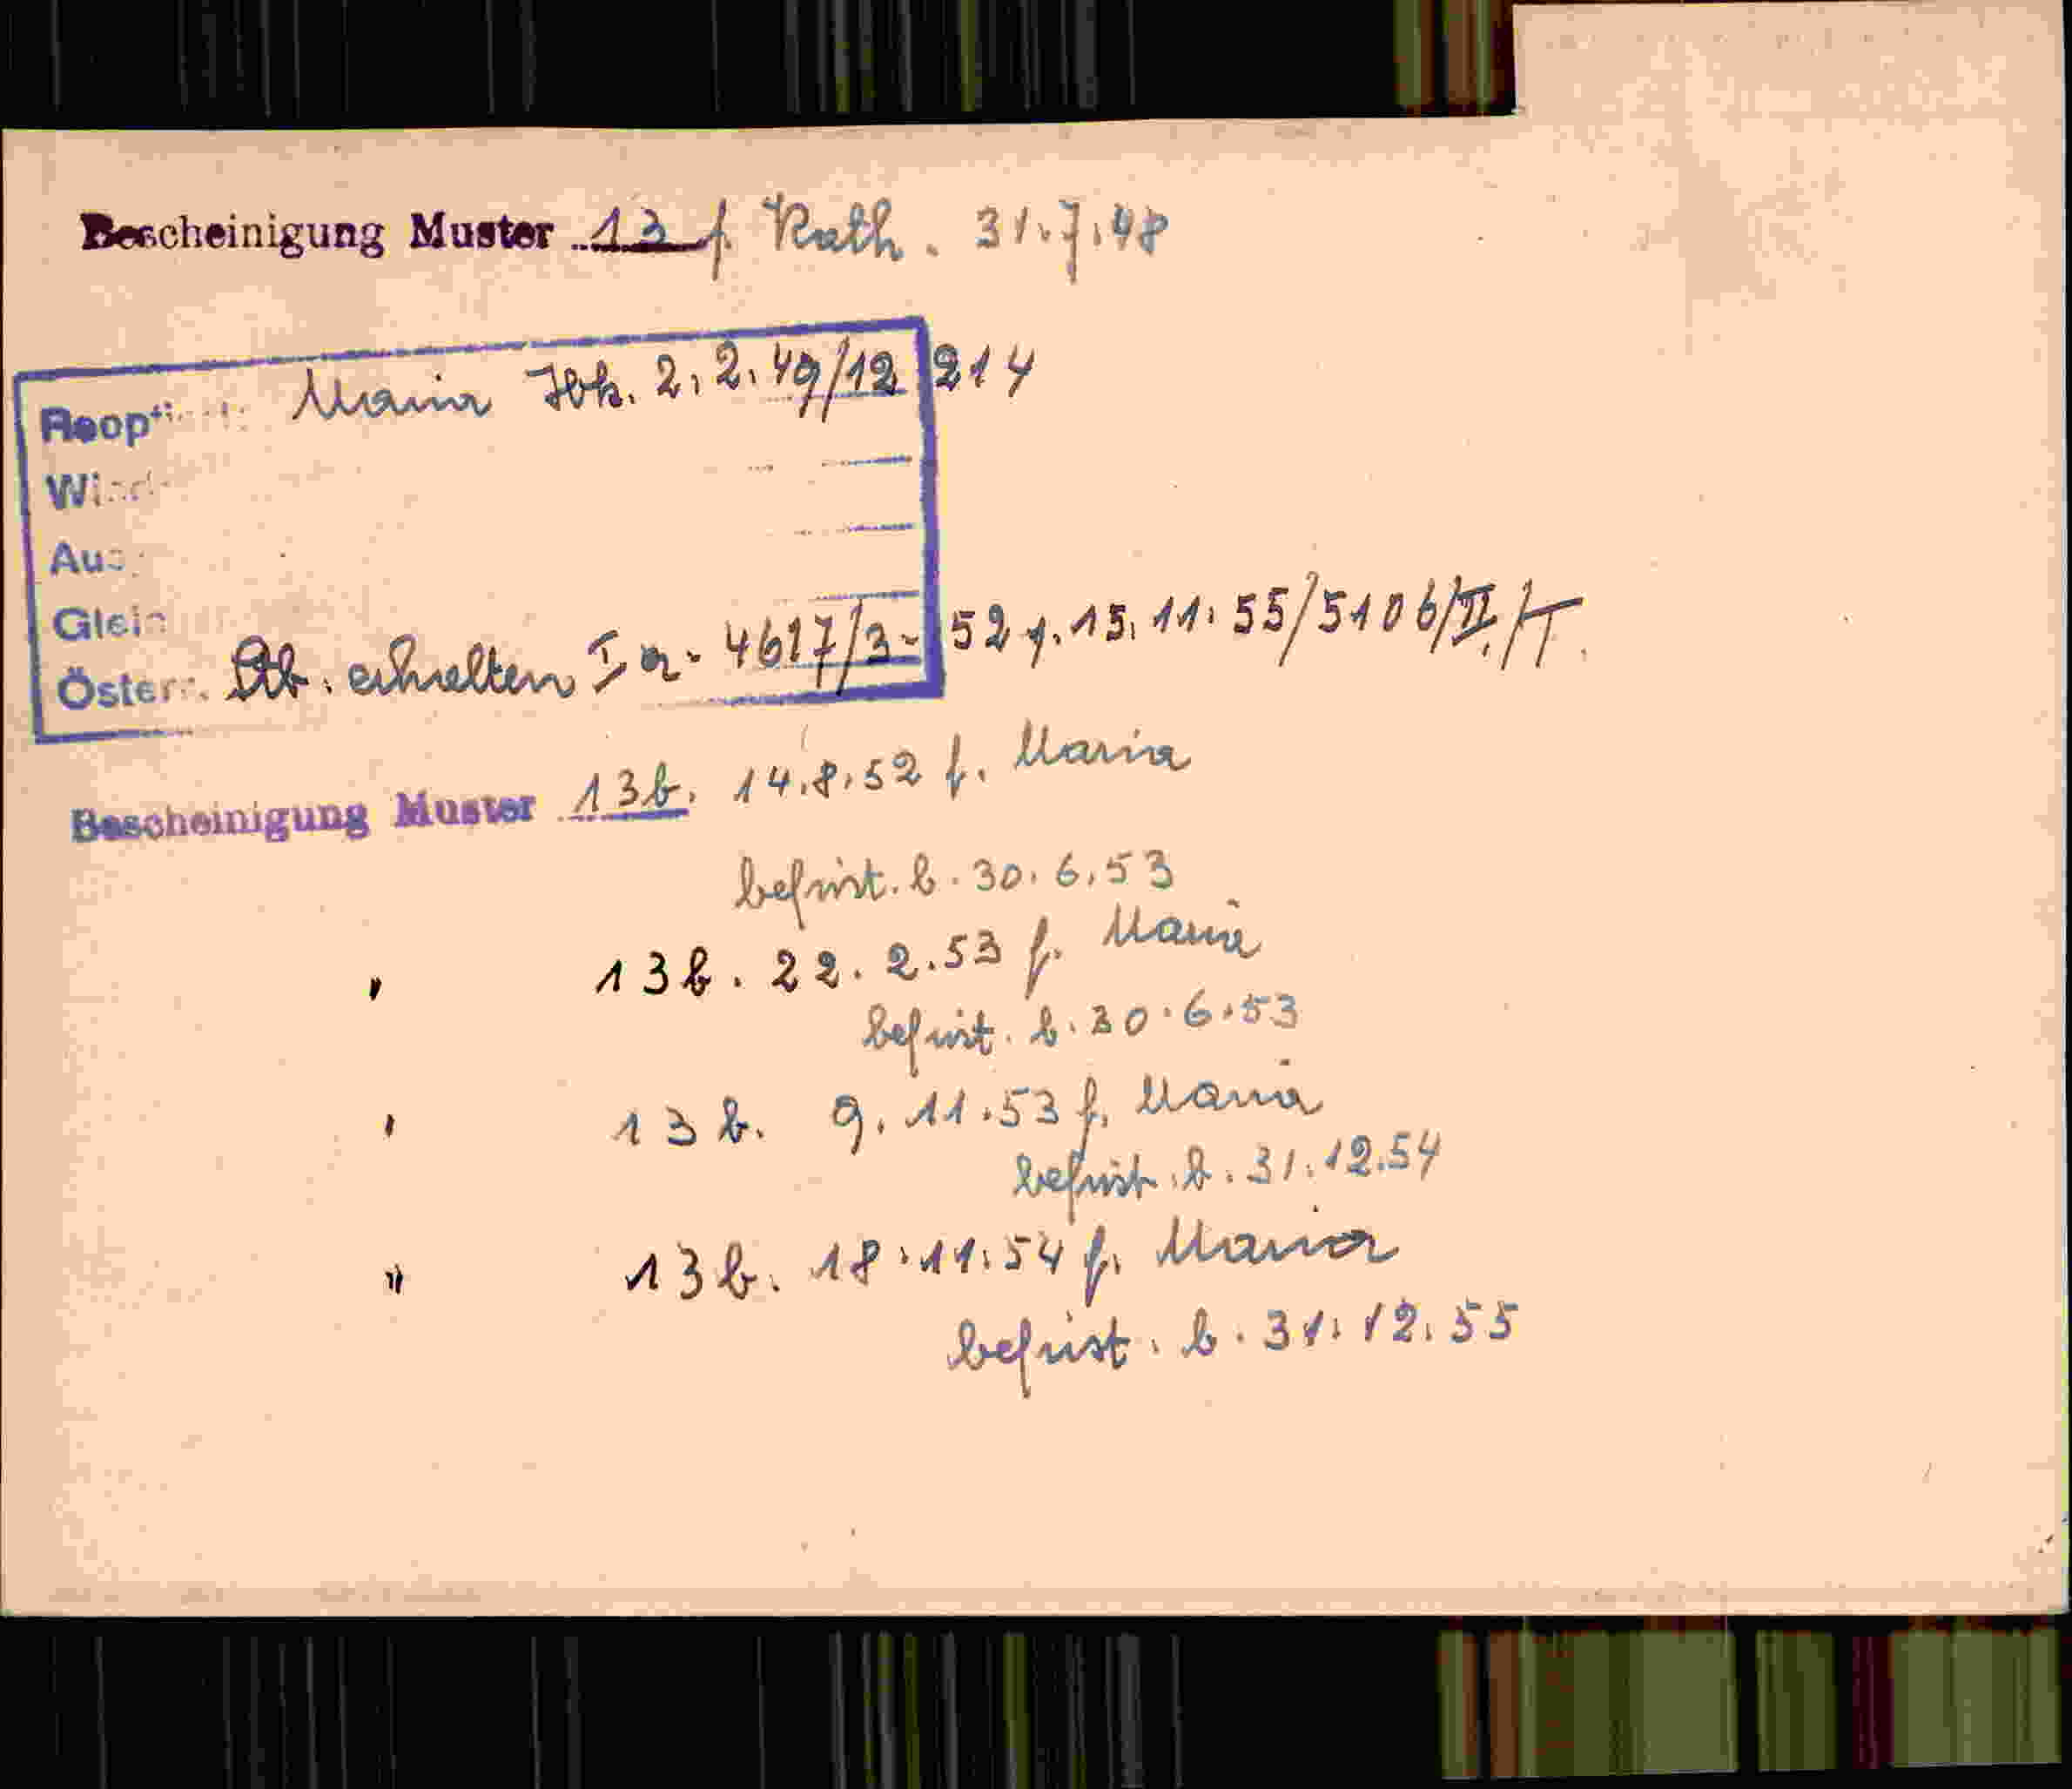 Bescheinigung Muster 13 f. Kath. 31.7.48
Maria 2.2.49/12 214
Reopt
Wied
Aus
Glei
Österr. Stb. erhalten I a. 4617/3-52 v. 15.11.55/5106/II/T.
Bescheinigung Muster 13b. 14.8.52 f. Maria
befrist. b. 30.6.53
" 13b. 22.2.53 f. Maria
befrist. b. 30.6.53
" 13b. 9.11.53 f. Maria
befrist. b. 31.12.54
" 13b. 18.11.54 f. Maria
befrist. b. 31.12.55